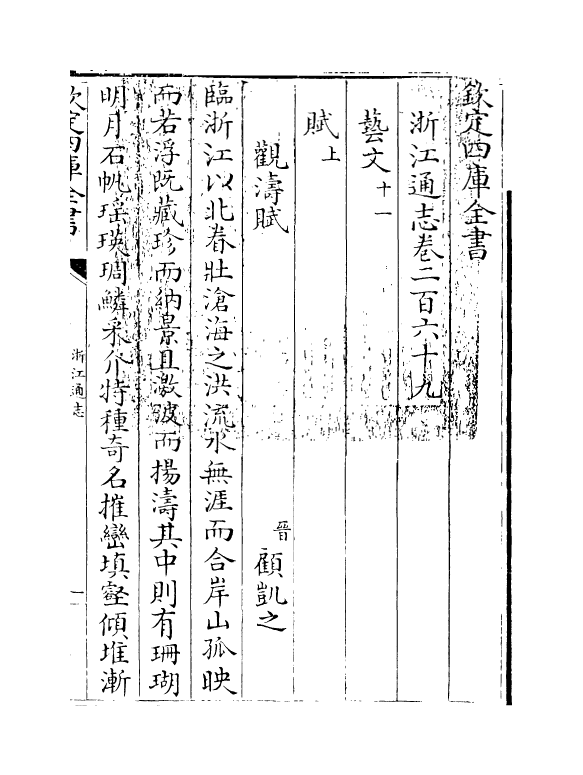 欽定四庫全書
浙江通志卷二百六十九
藝文十一
賦上
觀濤賦　晉顧凱之
臨浙江以北眷壯滄海之洪流水無涯而合岸山孤映
而若浮既藏珍而納景且激波而揚濤其中則有珊瑚
明月石帆瑤瑛琱鱗采介特種奇名摧巒填壑傾堆漸
欽定四庫全書
浙江通志
一